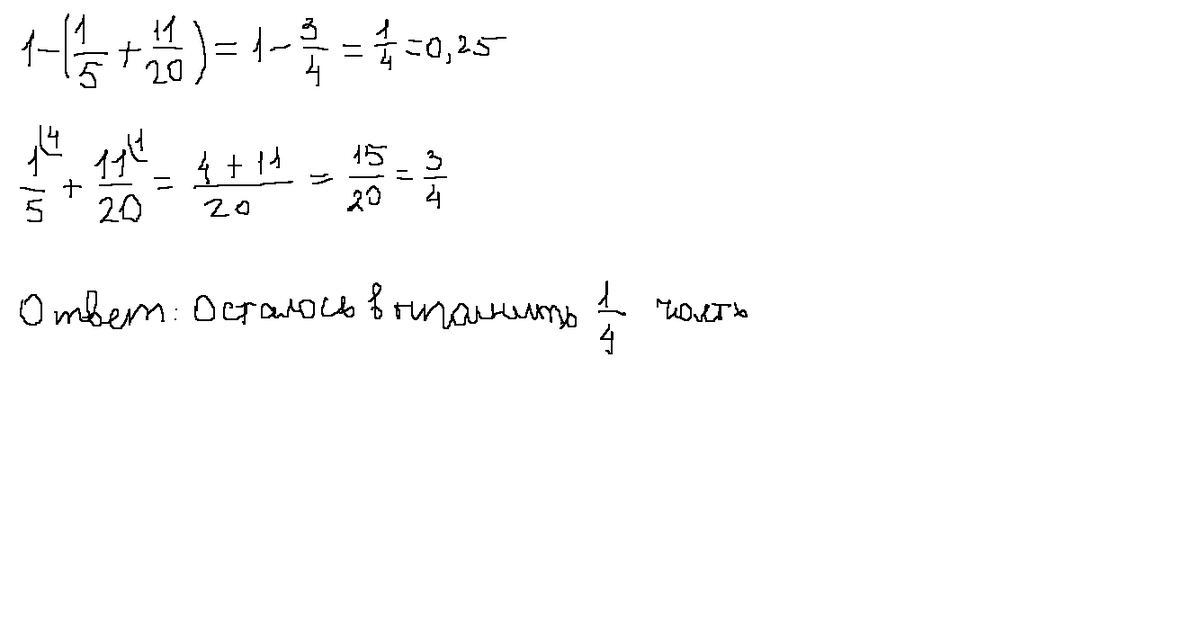 1-(1/5 + 11/20) = 1 - 3/4 = 1/4 = 0,25
1\4/5 + 11\1/20 = 4+11/20 = 15/20 = 3/4
Ответ: Осталось выполнить 1/4 часть